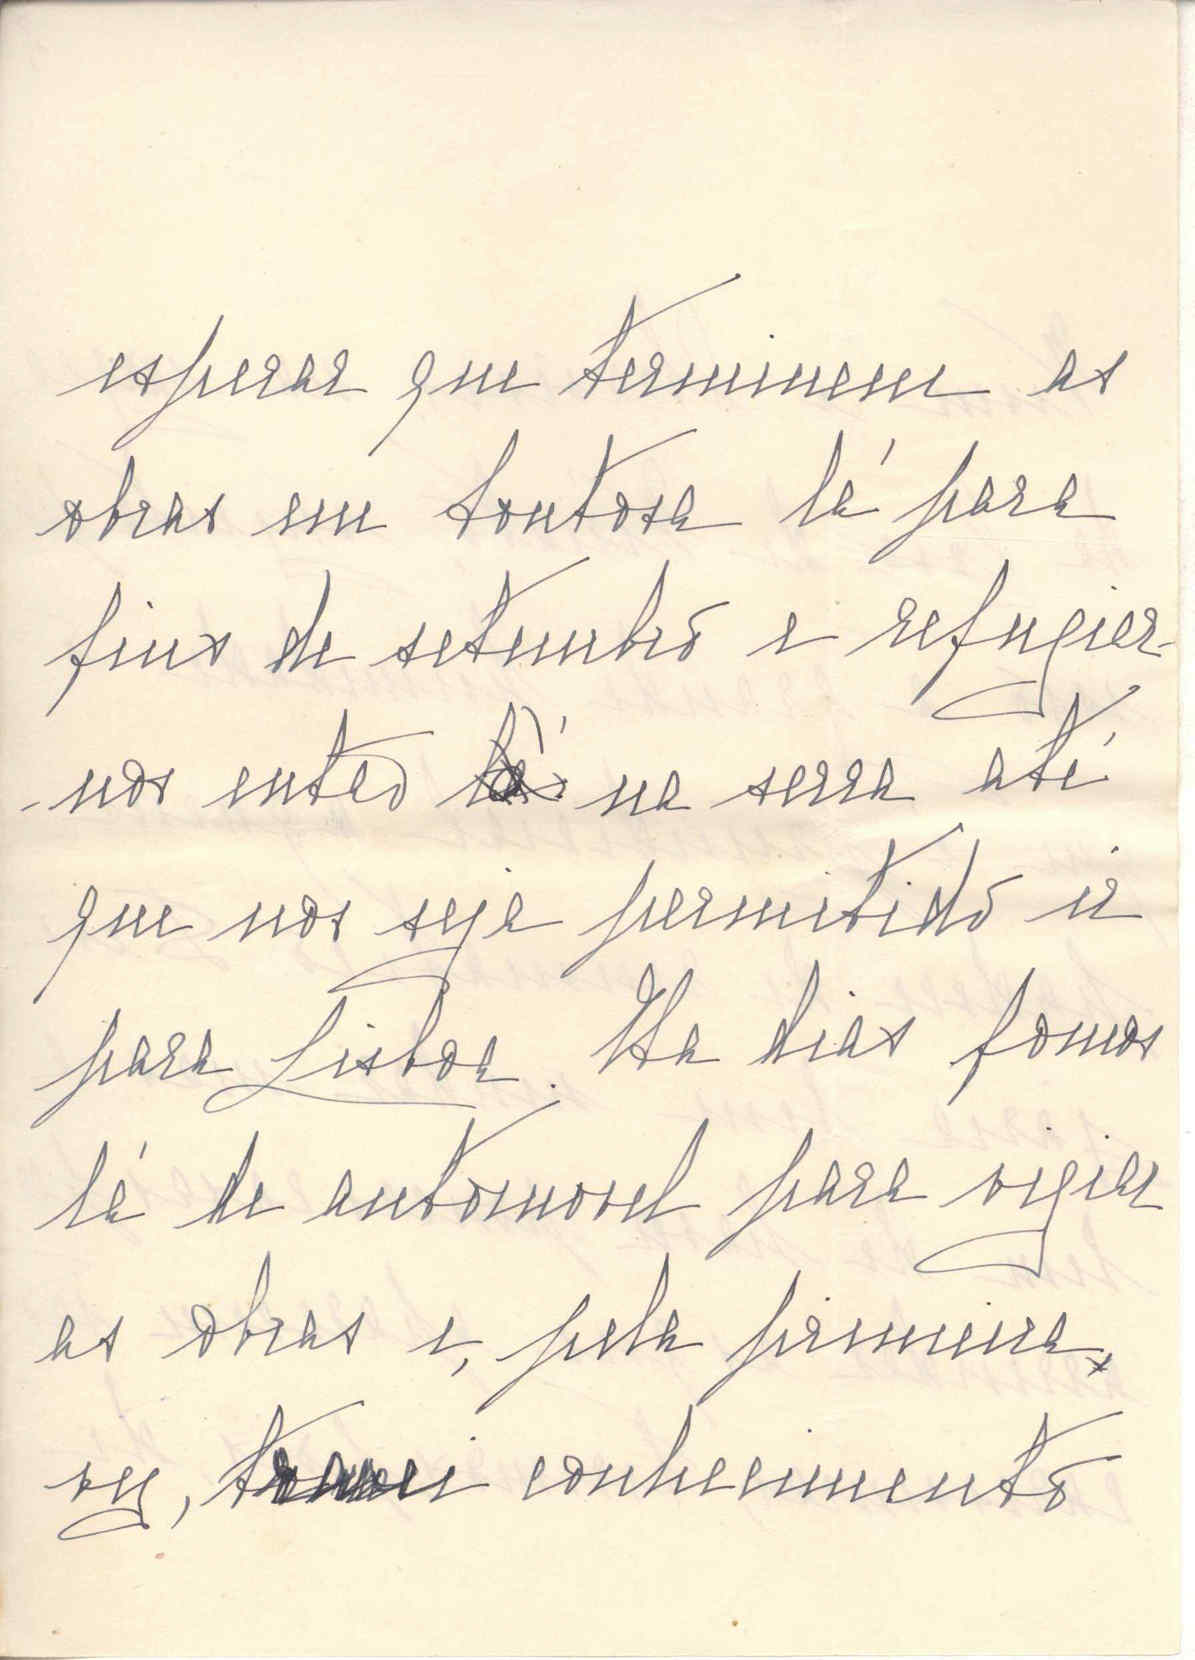 esperar que terminem as
obras em Tontosa lá para
fins de setembro e refugiar-
-nos então na serra até
que nos seja permitido ir
para Lisboa. Ha dias fomos
lá de automovel para vigiar
as obras e, pela primeira,
vez, tomei conhecimento